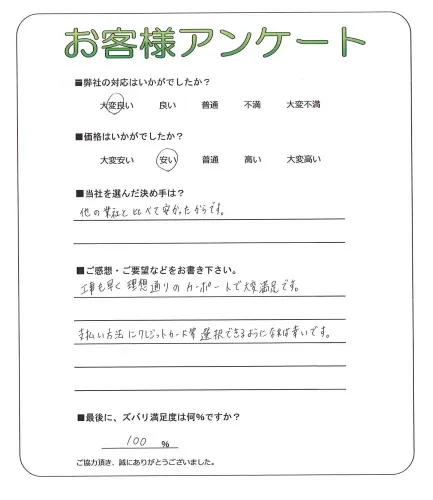 お客様アンケート
■弊社の対応はいかがでしたか?
大変良い 良い 普通 不満 大変不満
■価格はいかがでしたか?
大変安い 安い 普通 高い 大変高い
■当社を選んだ決め手は?
他の業社と比べて安かったからです。
■ご感想・ご要望などをお書き下さい。
工事も早く理想通りのカーポートで大変満足です。
支払い方法にクレジットカード等選択できるようになれば幸いです。
■最後に、ズバリ満足度は何%ですか?
100 %
ご協力頂き、誠にありがとうございました。